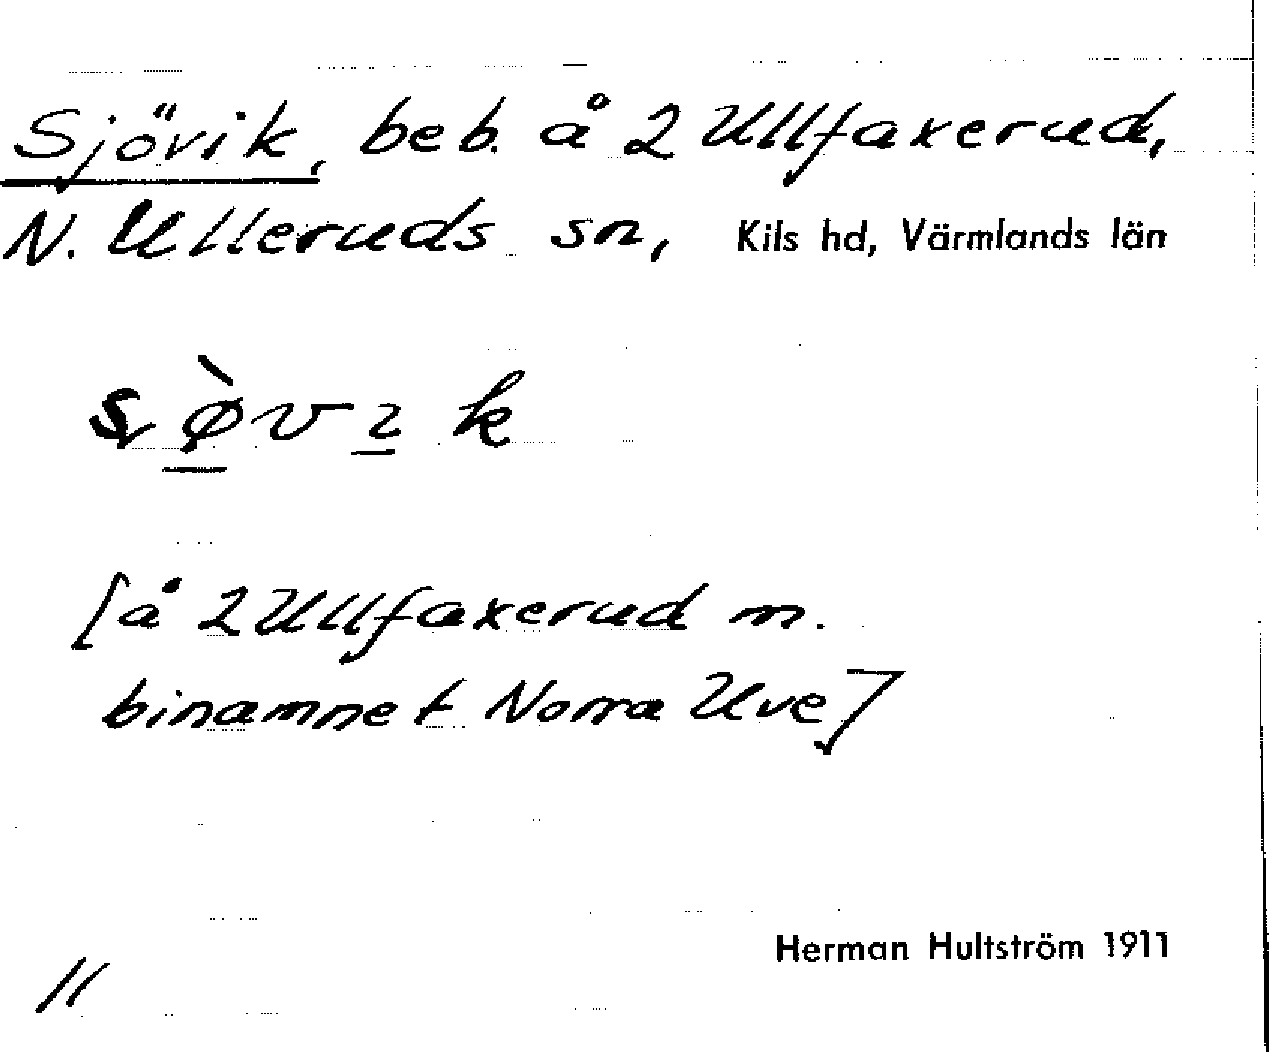 Sjövik, beb. å 2 Ullfaxerud,
N. Ulleruds sn, Kils hd, Värmlands län
[å 2 Ullfaxerud m.
binamnet Norra Uve]
Herman Hultström 1911
11